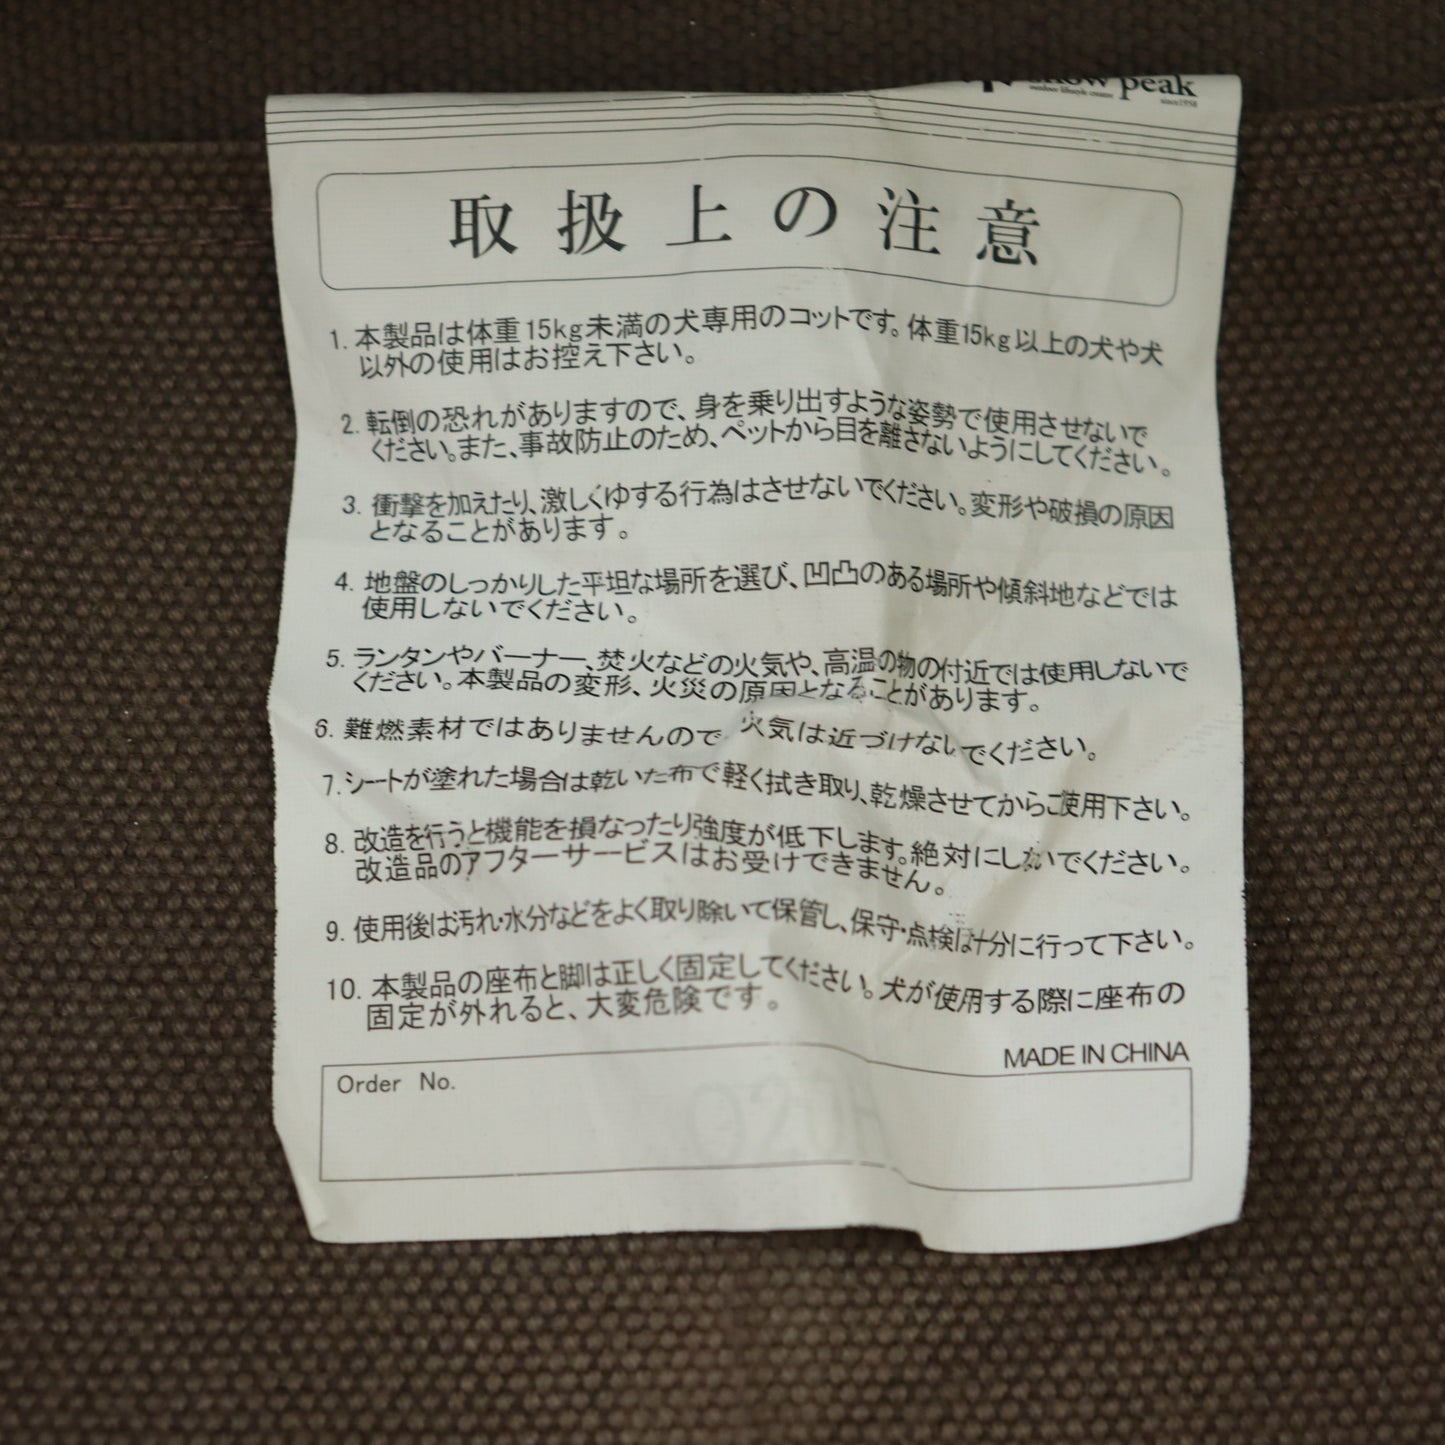 snow peak
outdoor lifestyle creator
since1958
取扱上の注意
1. 本製品は体重15kg未満の犬専用のコットです。体重15kg以上の犬や犬
以外の使用はお控え下さい。
2. 転倒の恐れがありますので、身を乗り出すような姿勢で使用させないで
ください。また、事故防止のため、ペットから目を離さないようにしてください。
3. 衝撃を加えたり、激しくゆする行為はさせないでください。変形や破損の原因
となることがあります。
4. 地盤のしっかりした平坦な場所を選び、凹凸のある場所や傾斜地などでは
使用しないでください。
5. ランタンやバーナー、焚火などの火気や、高温の物の付近では使用しないで
ください。本製品の変形、火災の原因となることがあります。
6. 難燃素材ではありませんので 火気は近づけないでください。
7. シートが塗れた場合は乾いた布で軽く拭き取り、乾燥させてからご使用下さい。
8. 改造を行うと機能を損なったり強度が低下します。絶対にしないでください。
改造品のアフターサービスはお受けできません。
9. 使用後は汚れ・水分などをよく取り除いて保管し、保守・点検は十分に行って下さい。
10. 本製品の座布と脚は正しく固定してください。犬が使用する際に座布の
固定が外れると、大変危険です。
MADE IN CHINA
Order No.